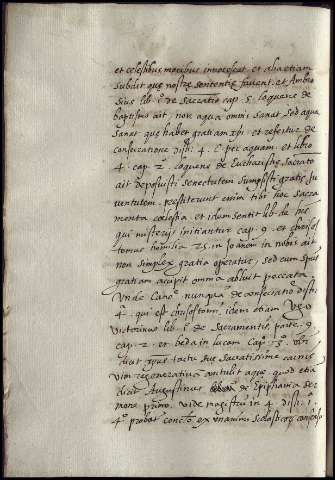 et celestibus motibus innotescat. et alia etiam
subdit que nostre sententie favent. et Ambro
sius lib. de Sacratio cap. 5. loquens de
baptismo ait. non aqua omnis sanat sed aqua
sanat que habet gratiam xpi. et refertur de
consecratione dist. 4. C. per aquam. et libro
4. cap. 2. loquens de Eucharistie Sacrato
ait deposuisti senectutem sumpsisti gratie ju
ventutem. prestiterunt enim tibi hoc sacra
menta celestia. et idem sentit lib. de his
qui misterijs initiantur cap. 9. et chrisos
tomus homilia 25. in Joanem in nobis ait
non simplex gratia operatur, sed cum spūs
gratiam accipit omnia abluit peccata.
Unde Cano. nunquid de consecratione dist.
4. qui est chrisostomi. idem etiam Ugo
victorinus lib. de Sacramentis parte. 9.
cap. 2. et beda in lucam cap. 13. Un
dicit xpus tactu sue sacratissime carnis
vim regenerativa contulit aque. quod etia
dicit Augustinus de Epiphania ser
mone primo. vide magistrum in 4. dist. 1.
4. probat conc.